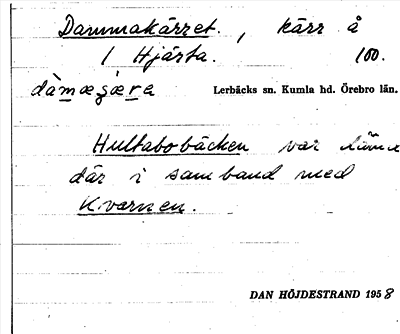 Dammakärret., kärr å
1 Hjärta. 100.
Lerbäcks sn. Kumla hd. Örebro län.
Hultabobäcken var
där i samband med
Kvarnen.
DAN HÖJDESTRAND 1958